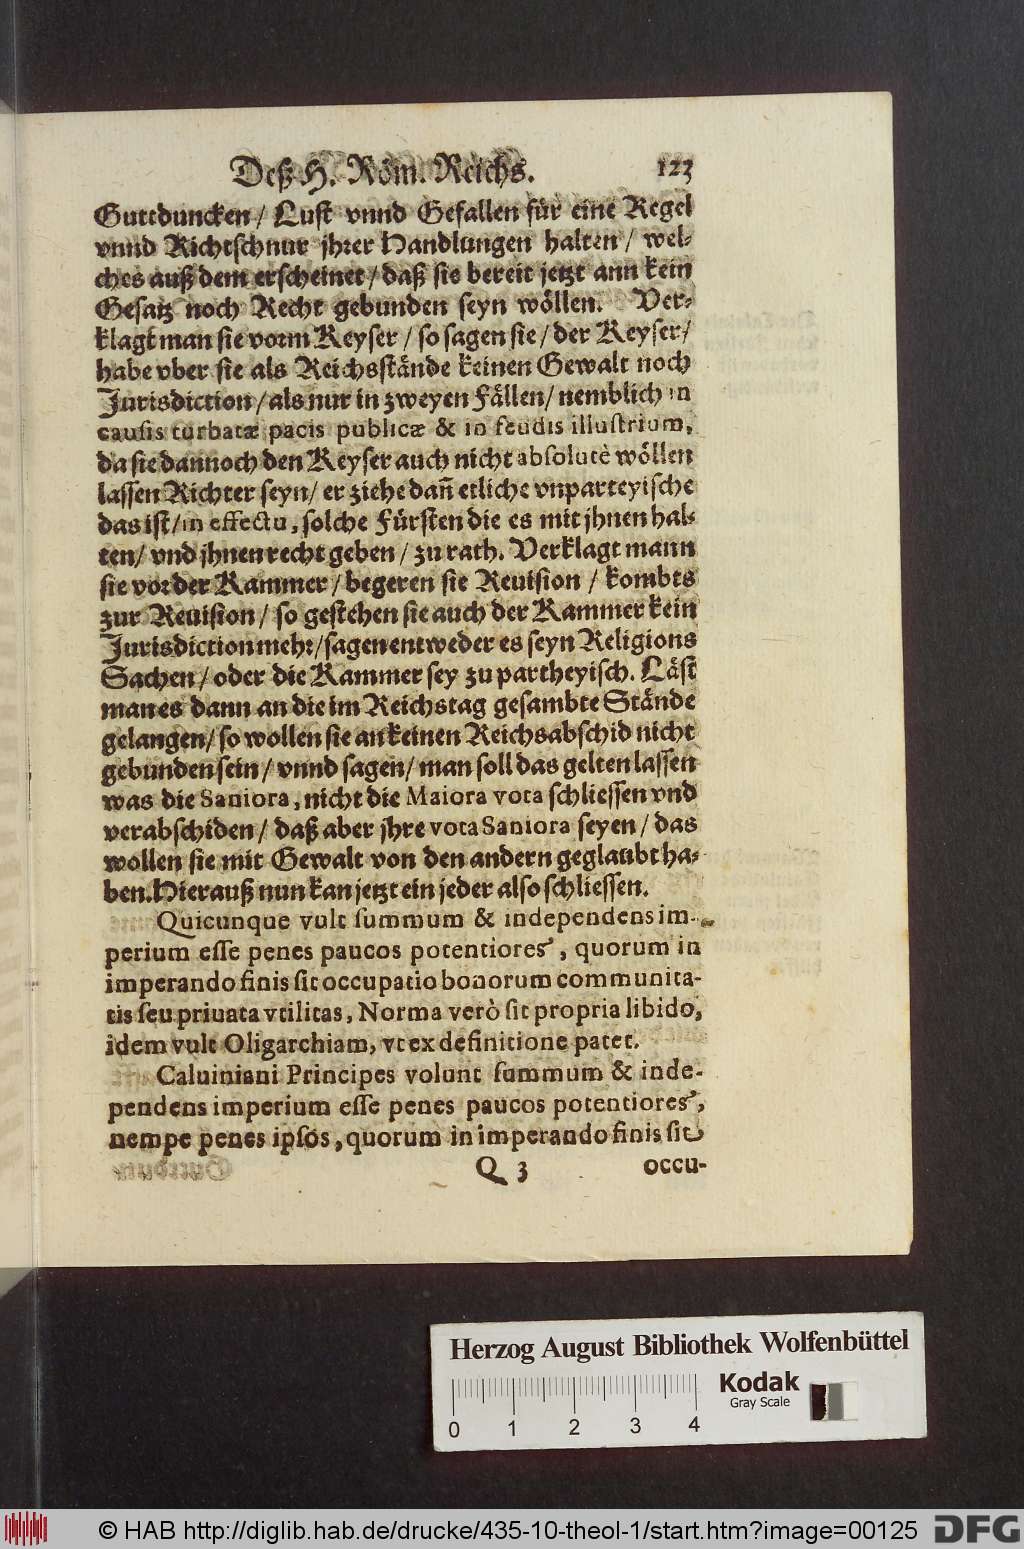 Deß H. Röm. Reichs. 123
Guttduncken / Lust vnnd Gefallen für eine Regel
vnnd Richtschnur jhrer Handlungen halten / wel-
ches auß dem erscheinet / daß sie bereit jetzt ann kein
Gesatz noch Recht gebunden seyn wöllen. Ver-
klagt man sie vorm Keyser / so sagen sie / der Keyser /
habe vber sie als Reichsstände keinen Gewalt noch
Jurisdiction / als nur in zweyen Fällen / nemblich in
causis turbatæ pacis publicæ & in feudis illustrium,
da sie dannoch den Keyser auch nicht absolutè wöllen
lassen Richter seyn / er ziehe dañ etliche vnparteyische
das ist / in effectu, solche Fürsten die es mit jhnen hal-
ten / vnd jhnen recht geben / zu rath. Verklagt mann
sie vor der Kammer / begeren sie Reuision / kombts
zur Reuision / so gestehen sie auch der Kammer kein
Jurisdiction mehr / sagen entweder es seyn Religions
Sachen / oder die Kammer sey zu partheyisch. Läst
man es dann an die im Reichstag gesambte Stände
gelangen / so wollen sie an keinen Reichsabschid nicht
gebunden sein / vnnd sagen / man soll das gelten lassen
was die Saniora, nicht die Maiora vota schliessen vnd
verabschiden / daß aber jhre vota Saniora seyen / das
wollen sie mit Gewalt von den andern geglaubt ha-
ben. Hierauß nun kan jetzt ein jeder also schliessen.
Quicunque vult summum & independens im-
perium esse penes paucos potentiores, quorum in
imperando finis sit occupatio bonorum communita-
tis seu priuata vtilitas, Norma verò sit propria libido,
idem vult Oligarchiam, vt ex definitione patet.
Caluiniani Principes volunt summum & inde-
pendens imperium esse penes paucos potentiores,
nempe penes ipsos, quorum in imperando finis sit
Q 3 occu-
Herzog August Bibliothek Wolfenbüttel
Kodak
Gray Scale
0 1 2 3 4
© HAB http://diglib.hab.de/drucke/435-10-theol-1/start.htm?image=00125 DFG